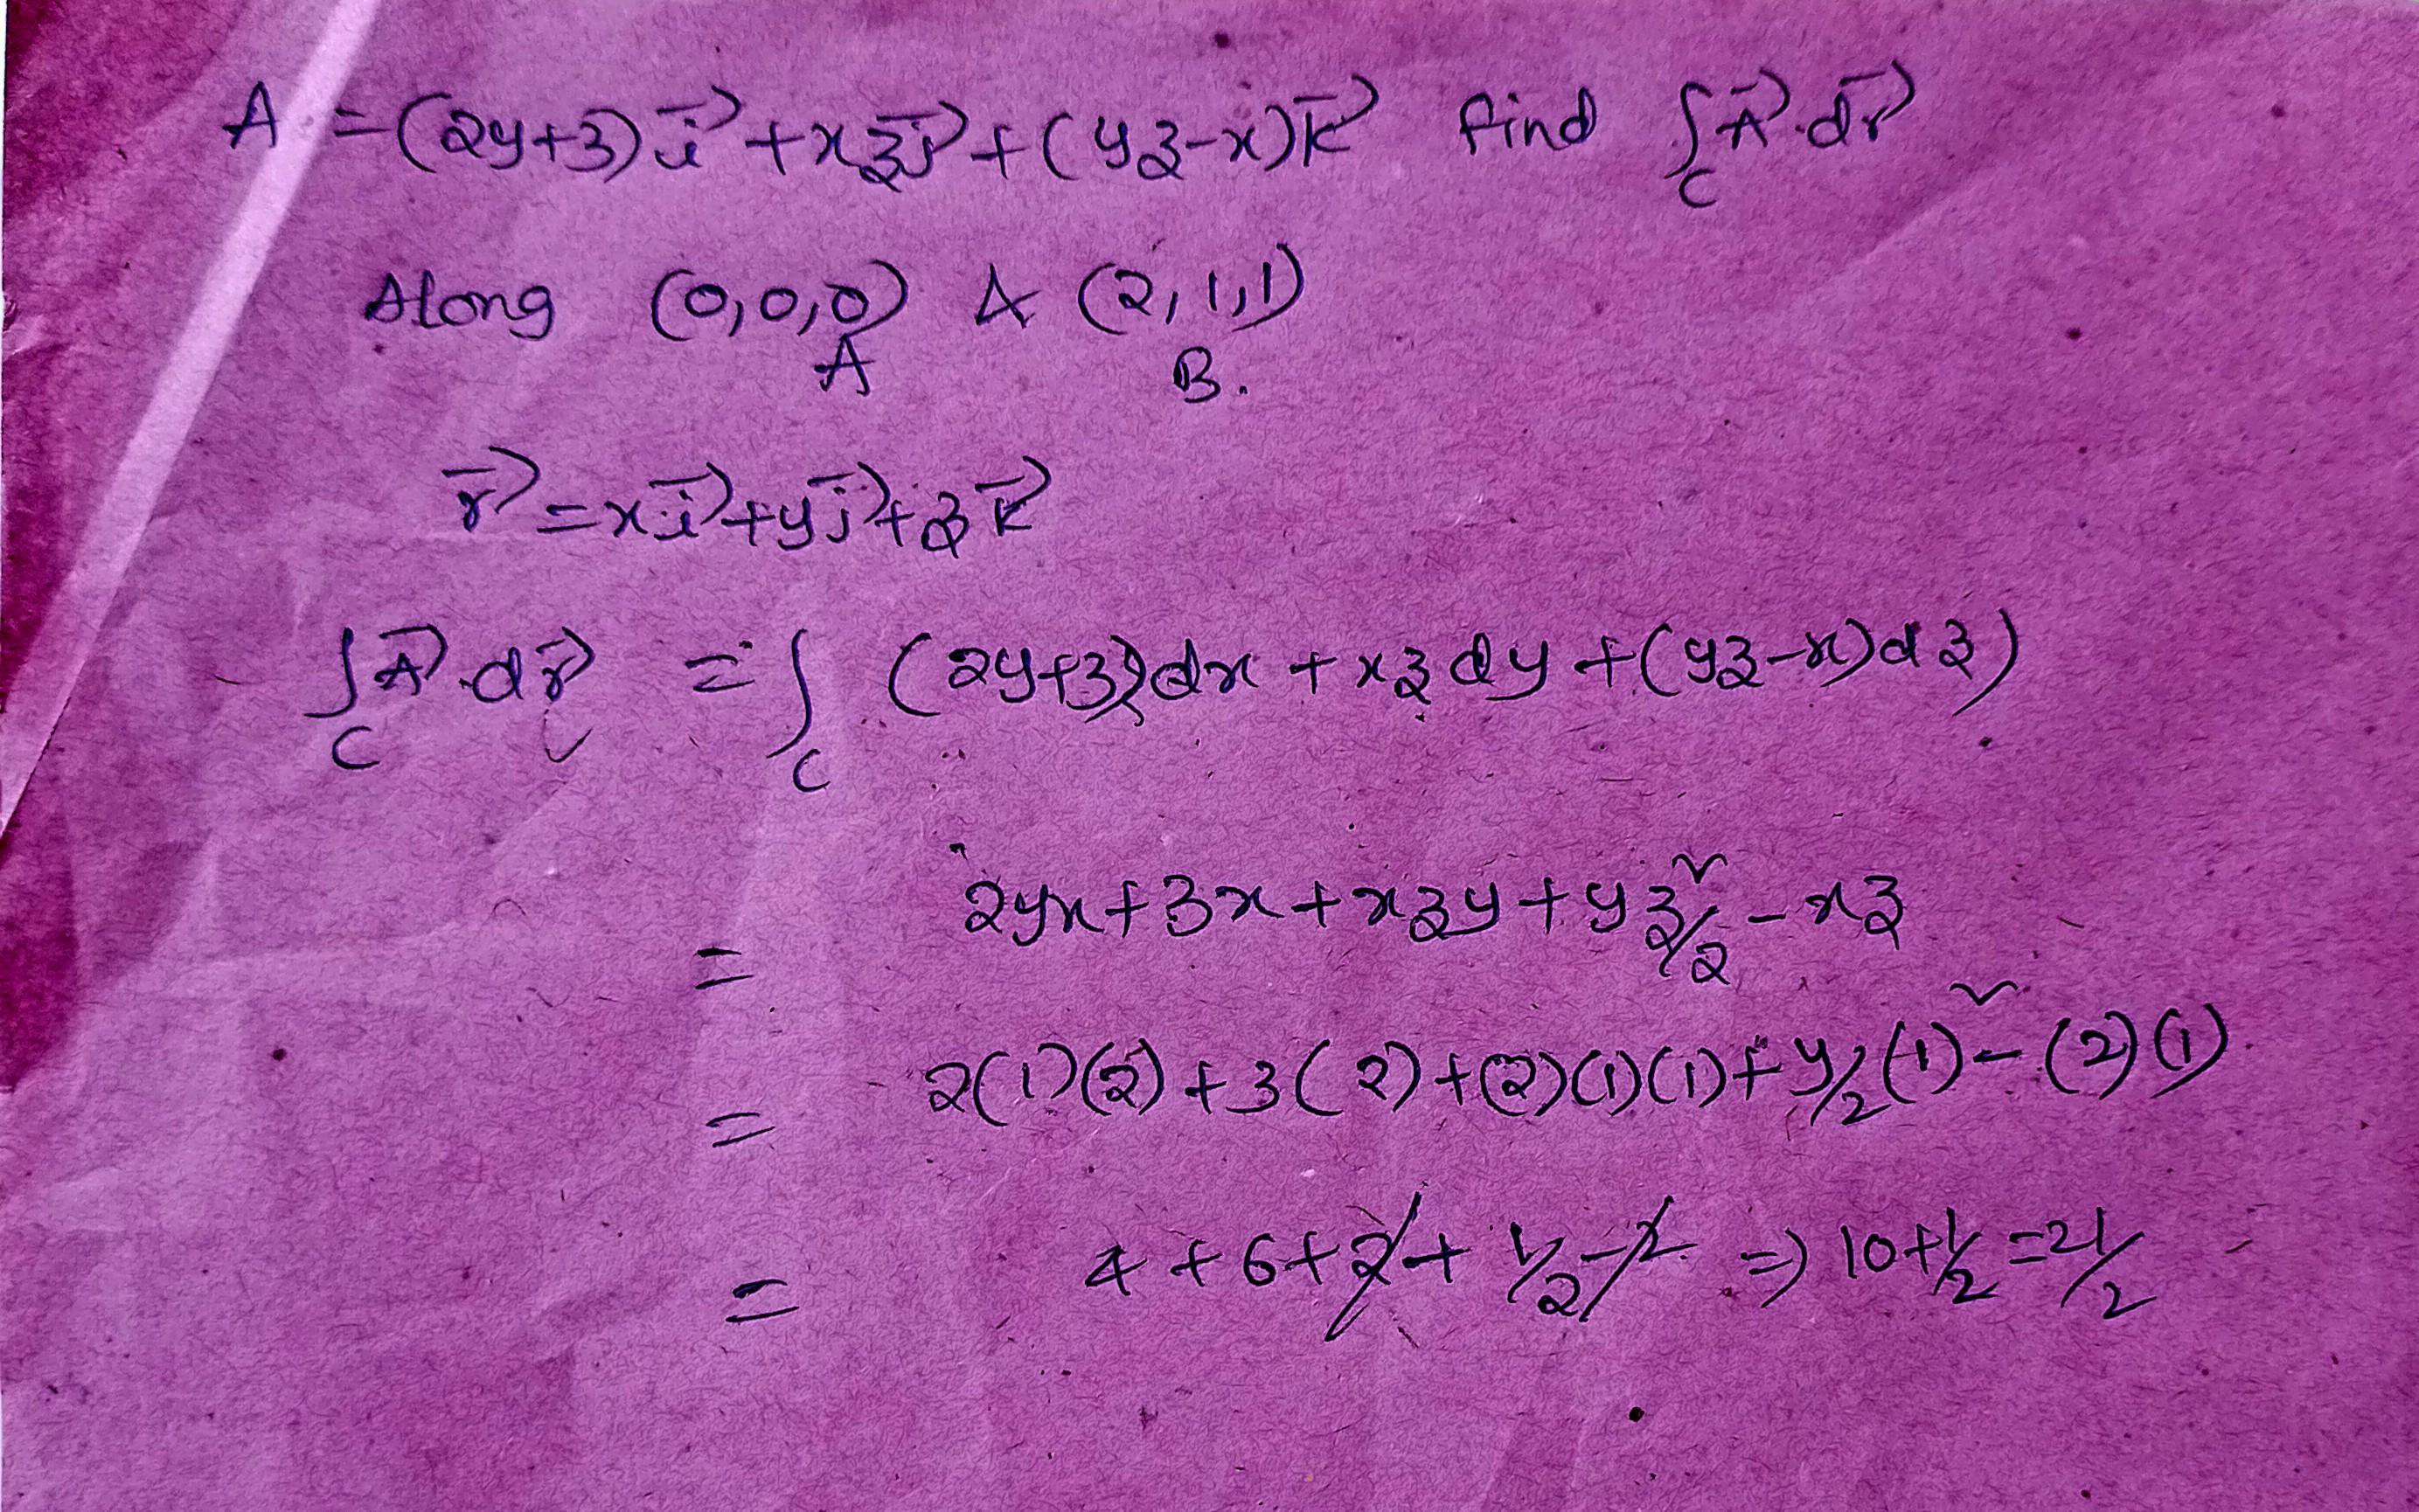 A = (2y+3)i⃗ + xzj⃗ + (yz-x)k⃗ find ∫_C A⃗.dr⃗
Along (0,0,0) & (2,1,1)
A B.
r⃗ = xi⃗+yj⃗+zk⃗
∫_C A⃗.dr⃗ = ∫_C (2y+3)dx + xzdy + (yz-x)dz)
= 2yx+3x+xzy+yz²/2 - xz
= 2(1)(2)+3(2)+(2)(1)(1)+y/2(1)²-(2)(1)
= 4+6+2+1/2-2 ⇒ 10+1/2=21/2